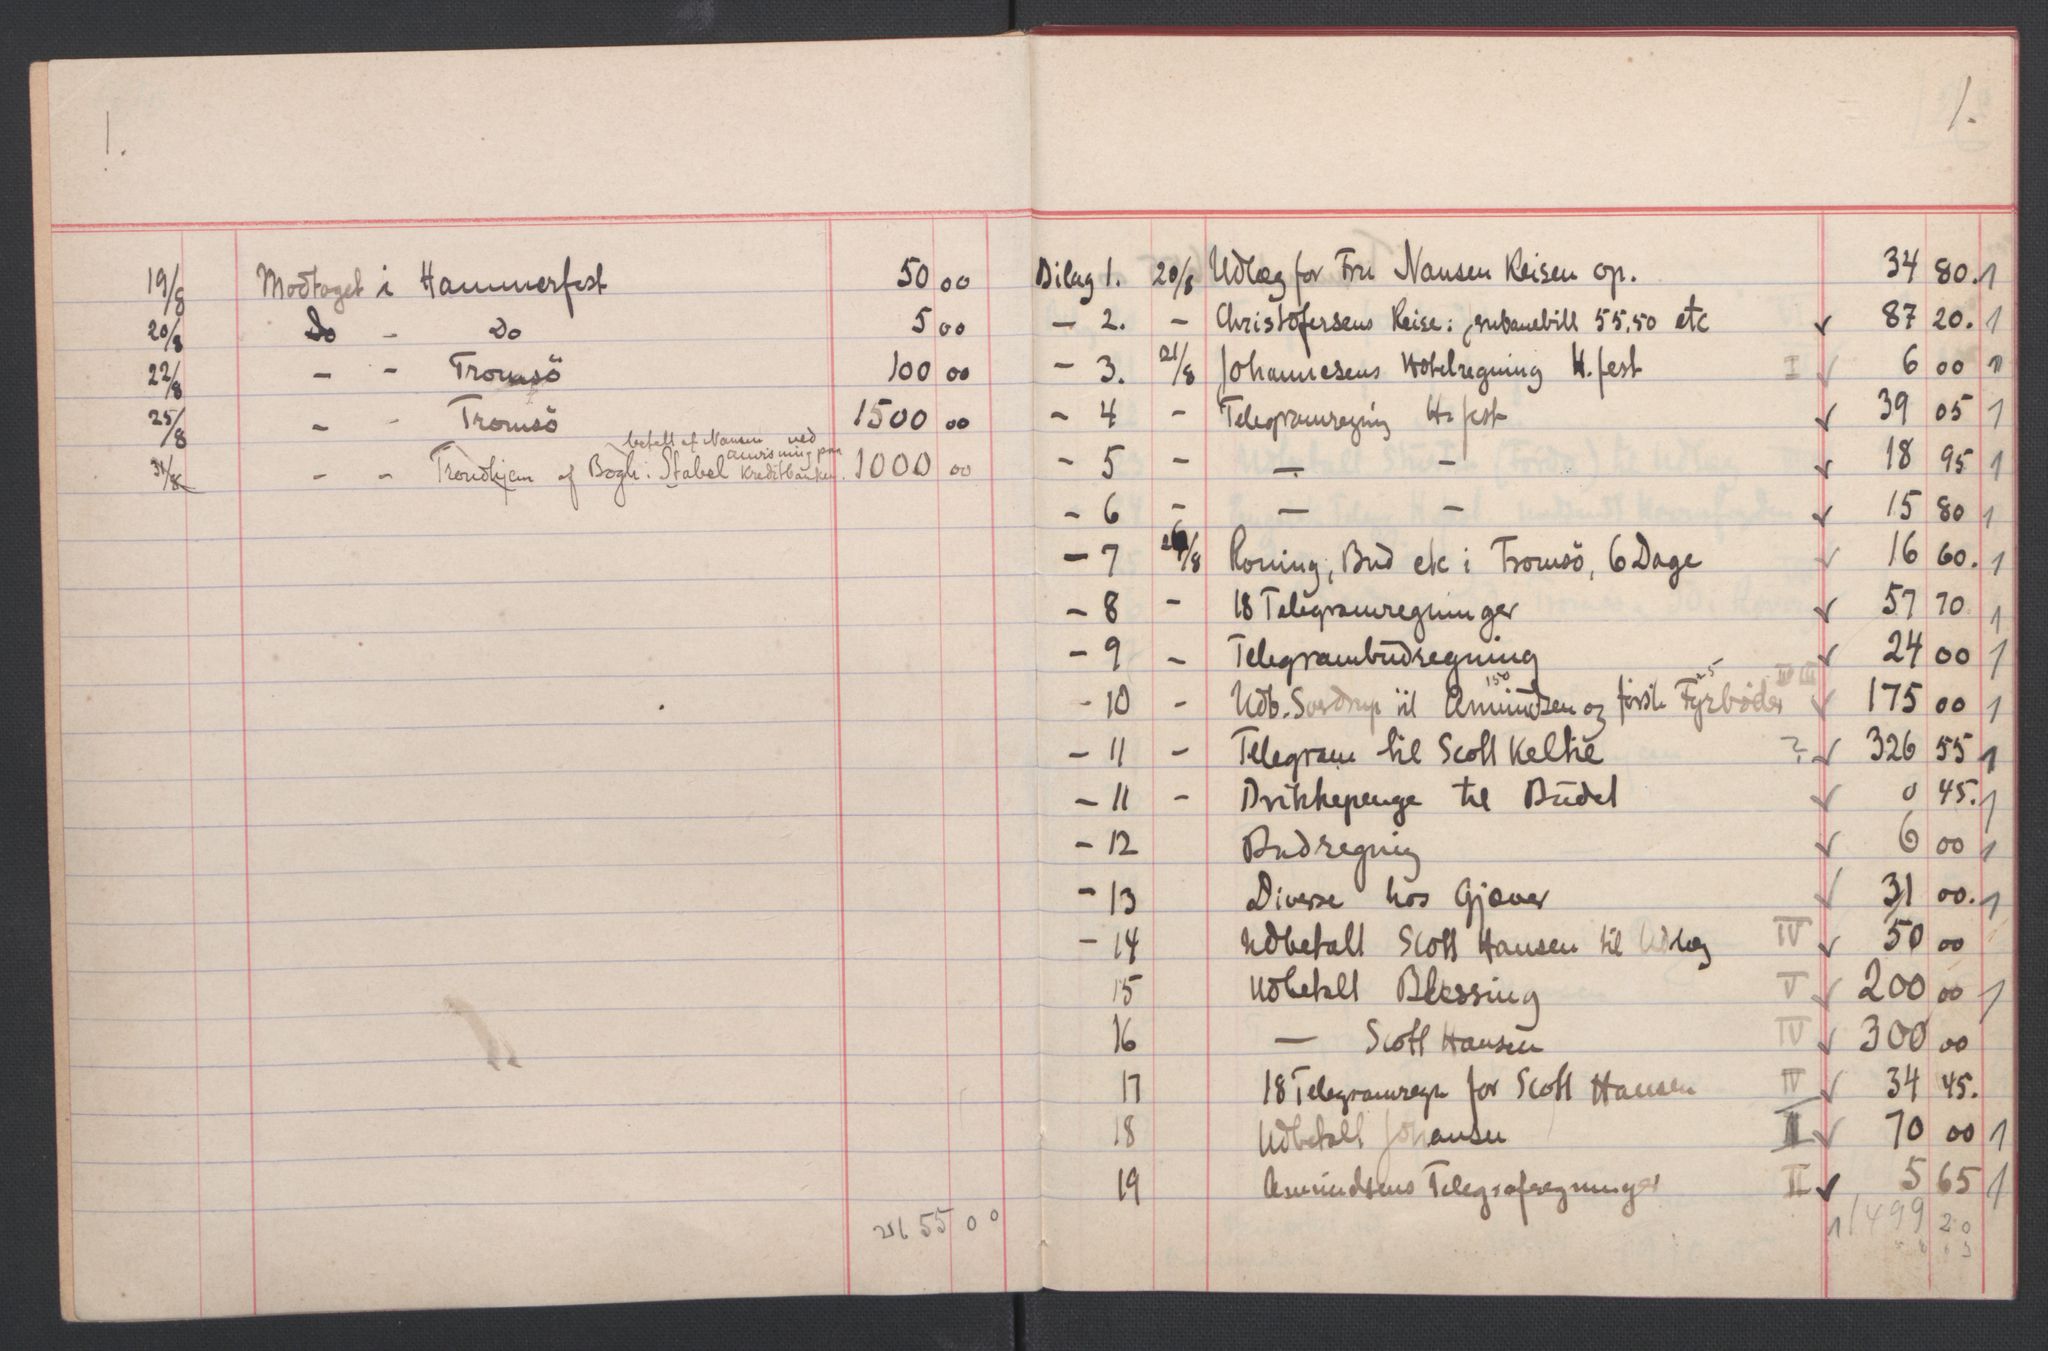 1.
19/8 Modtaget i Hammerfest 50 00
20/8 Do - Do 5 00
22/8 - - Tromsö 100 00
25/8 - - Tromsö 1500 00
betalt af Nansen ved
anvisning paa
31/8 - - Trondhjem af Bogh. Stabel Kreditbanken. 1000 00
2655 00
1.
Bilag 1. 20/8 Udlæg for Fru Nansen Reisen op. 34 80. 1
- 2. - Christofersens Reise: 55,50 etc √ 87 20. 1
- 3. 21/8 Johannesens Hotelregning H.fest I √ 6 00 1
- 4 - Telegramregning H.fest √ 39 05 1
- 5 - — - √ 18 95 1
- 6 - — - √ 15 80 1
- 7 26/8 Roning, Bud etc i Tromsö, 6 Dage √ 16 60. 1
- 8 - 18 Telegramregninger √ 57 70 1
- 9 - Telegrambudregning √ 24 00 1
150 25
- 10 - Udb. Sverdrup til Amundsen og første Fyrbøder II III √ 175 00 1
- 11 - Telegram til Scott Keltie ? √ 326 55 1
- 11 - Drikkepenge til Budet √ 0 45. 1
- 12 Budregning √ 6 00 1
- 13 Diverse hos Gjæver √ 31 00. 1
- 14 Udbetalt Scott Hansen til Udlæg IV √ 50 00
15 Udbetalt Blessing V √ 200 00 1
16 — Scott Hansen IV √ 300 00
17 18 Telegramregn for Scott Hansen IV √ 34 45.
18 Udbetalt Johansen II √ 70 00 1
19 Amundsens Telegrafregninger II √ 5 65 1
1499 20